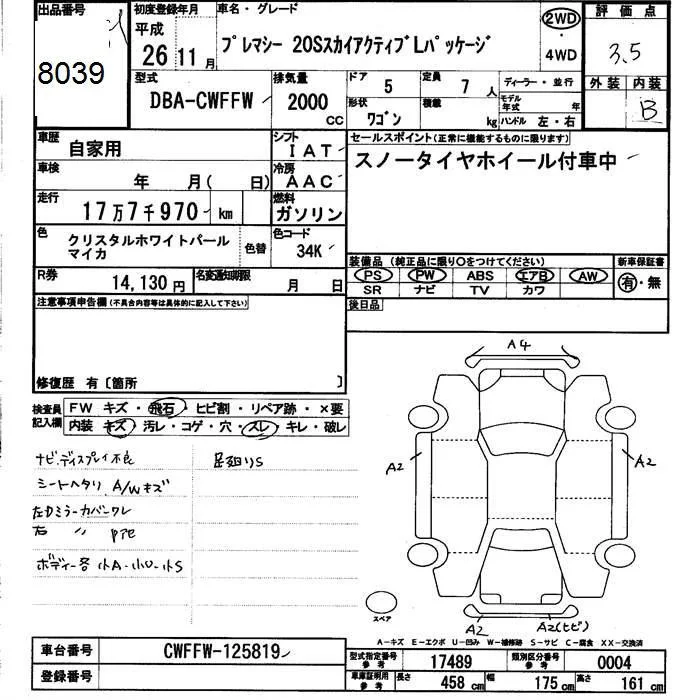 出品番号
8039
初度登録年月
平成
26 11月
車名・グレード
プレマシー 20SスカイアクティブLパッケージ
2WD
・
4WD
評価点
3.5
外装 内装
B
型式
DBA-CWFFW
排気量
2000
CC
ドア
5
定員
7人
形状
ワゴン
積載
kg
ディーラー・並行
モデル年式 年
ハンドル 左・右
車歴
自家用
シフト
IAT
セールスポイント(正常に機能するものに限ります)
スノータイヤホイール付車中
車検
年 月( 日)
冷房
AAC
走行
17万7千970 km
燃料
ガソリン
色
クリスタルホワイトパール
マイカ
色替
色コード
34K
装備品 (純正品に限り○をつけてください)
新車保証書
PS PW ABS エアB AW
SR ナビ TV カワ
有・無
R券
14,130円
名変通知期限
月 日
後日品
注意事項申告欄(不具合内容等は具体的に記入して下さい)
修復歴 有〔箇所 〕
検査員
記入欄
FW キズ・飛石・ヒビ割・リペア跡・×要
内装 キズ・汚レ・コゲ・穴・スレ・キレ・破レ
ナビ.ディスプレイ不良
足廻りS
シートヘタリ A/Wキズ
左Dミラーカバーワレ
右 〃 P7E
ボディー各小A・小U・小S
A4
A2
A2
スペア
A2
A2(ヒビ)
A-キズ E-エクボ U-凹み W-補修跡 S-サビ C-腐食 XX-交換済
車台番号
CWFFW-125819
登録番号
型式指定番号
参考
17489
類別区分番号
参考
0004
車庫証明用
参考
長さ
458cm
幅
175cm
高さ
161cm